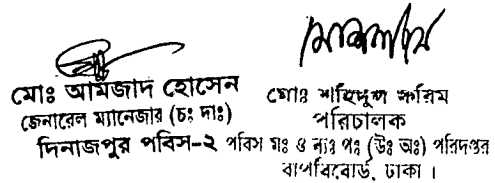 মোঃ আমজাদ হোসেন
জেনারেল ম্যানেজার (চঃ দাঃ)
দিনাজপুর পবিস-২
মোঃ শহিদুল করিম
পরিচালক
পবিস মঃ ও ব্যঃ পঃ (উঃ অঃ) পরিদপ্তর
বাপবিবোর্ড, ঢাকা ।